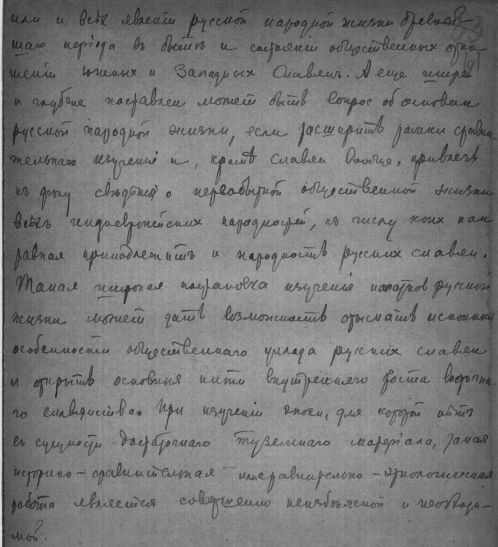 или и всѣх явленій русской народной жизни древнѣй-
шаго періода въ бытѣ и состояніи общественных отно-
шеній южных и Западных Славян. А еще шире
и глубже поставлен может быть вопрос об основах
русской народной жизни, если расширить рамки сравни-
тельнаго изученія и, кромѣ славян вообще, привлечь
къ дѣлу свѣдѣнія о первобытной общественной жизни
всѣх индоевропейских народностей, къ числу коих
принадлежитъ и народность русских славян.
Такая широкая постановка изученія начатков русской
жизни может дать возможность отыскать исконныя
особенности общественнаго уклада русских славян
и открыть основныя нити внутренняго роста восточна-
го славянства. При изученіи эпохи, для которой нѣтъ
въ сущности достаточнаго туземнаго матеріала, такая
историко-сравнительная и сравнительно-этнологическая
работа является совершенно неизбѣжной и необходи-
мой.